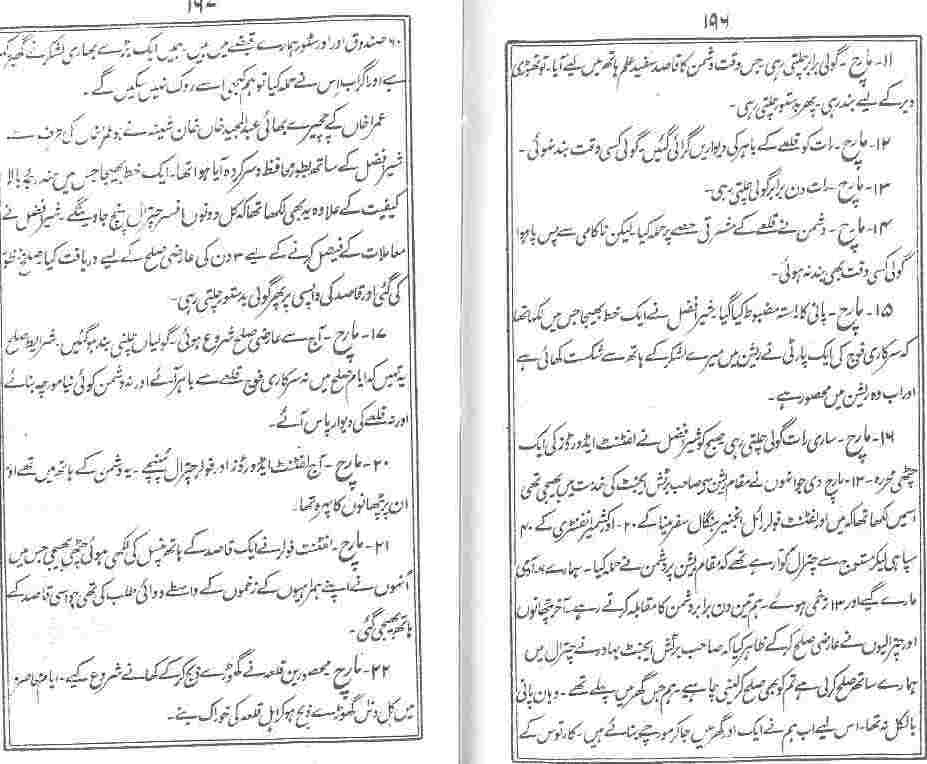 ۱۹۶
۱۱- مارچ - گولی برابر چلتی رہی جس وقت دشمن کا قاصد سفید علم ہاتھ میں لیے آیا۔ تو تھوڑی
دیر کے لیے بند رہی۔ پھر بدستور چلتی رہی۔
۱۲- مارچ - رات کو قلعے کے باہر کی دیواریں گرائی گئیں۔ گولی کسی وقت بند نہوئی۔
۱۳- مارچ - رات دن برابر گولی چلتی رہی۔
۱۴- مارچ - دشمن نے قلعے کے شرقی حصے پر حملہ کیا۔ لیکن ناکامی سے پس پا ہوا
گولی کسی وقت بھی بند نہ ہوئی۔
۱۵- مارچ - پانی کا راستہ مضبوط کیا گیا۔ شیر افضل نے ایک خط بھیجا جس میں لکھا تھا
کہ سرکاری فوج کی ایک پارٹی نے ریشن میں میرے لشکر کے ہاتھ سے شکست کھائی ہے
اور اب وہ ریشن میں محصور ہے۔
۱۶- مارچ - ساری رات گولی چلتی رہی صبح کو شیر افضل نے لفٹنٹ ایڈورڈز کی ایک
چٹھی محررہ ۱۳- مارچ دی جو انھوں نے مقام ریشن سی صاحب برٹش ایجنٹ کی خدمت میں بھیجی تھی
اسمیں لکھا تھا کہ میں اور لفٹنٹ فولر رائل انجنیر بنگال سفر مینا کے ۲۰- اور کشمیر انفنٹری کے ۴۰
سپاہی لیکر مستوج سے چترال کو آ رہے تھے کہ مقام ریشن پر دشمن نے حملہ کیا۔ ہمارے آدمی
مارے گیے اور ۱۳ زخمی ہوے۔ ہم تین دن برابر دشمن کا مقابلہ کرتے رہے۔ آخر پٹھانوں
اور چترالیوں نے عارضی صلح کر کے ظاہر کیا کہ صاحب برٹش ایجنٹ بہادر نے چترال میں
ہمارے ساتھ صلح کر لی ہے تم کو بھی صلح کر لینی چاہیے۔ ہم جس گھر میں پہلے تھے۔ وہاں پانی
بالکل نہ تھا۔ اس لیے اب ہم نے ایک اور گھر میں جا کر مورچے بنائے ہیں۔ کارتوس کے
۱۹۷
۶۰ صندوق اور اور سٹور ہمارے قبضے میں ہیں۔ ہمیں ایک بڑے بھاری لشکر نے گھیر رکھا
ہے اور اگر اب اس نے حملہ کیا تو ہم کبھی اسے روک نہیں سکیں گے۔
عمرا خاں کے چچیرے بھائی عبدالمجید خاں خان شینہ نے جو عمرا خاں کی طرف سے
شیر افضل کے ساتھ بطور محافظ و سرکردہ آیا ہوا تھا۔ ایک خط بھیجا جس میں مندرجہ بالا
کیفیت کے علاوہ یہ بھی لکھا تھا کہ کل دونوں افسر چترال پہنچ جاوینگے۔ شیر افضل نے
معاملات کے فیصل کرنے کے لیے ۳ دن کی عارضی صلح کے لیے دریافت کیا صلح منظور
کی گئی اور قاصد کی واپسی پر پھر گولی بدستور چلتی رہی۔
۱۷- مارچ - آج سے عارضی صلح شروع ہوئی۔ گولیاں چلنی بند ہو گئیں۔ شرایط صلح
یہ تھیں کہ ایام صلح میں نہ سرکاری فوج قلعے سے باہر آئے اور نہ دشمن کوئی نیا مورچہ بنائے
اور نہ قلعے کی دیوار پاس آئے۔
۲۰- مارچ - آج لفٹنٹ ایڈورڈز اور فولر چترال پہنچے۔ یہ دشمن کے ہاتھ میں تھے اور
ان پر پٹھانوں کا پہرہ تھا۔
۲۱- مارچ - لفٹنٹ فولر نے ایک قاصد کے ہاتھ پنسل کی لکھی ہوئی چٹھی بھیجی جس میں
اُنھوں نے اپنے ہمراہیوں کے زخموں کے واسطے دوائی طلب کی تھی جو اسی قاصد کے
ہاتھ بھیجی گئی۔
۲۲- مارچ محصورین قلعہ نے گھوڑے ذبح کر کے کھانے شروع کیے۔ ایام محاصرہ
میں کل دس گھوڑے ذبح ہو کر اہل قلعہ کی خوراک بنے۔